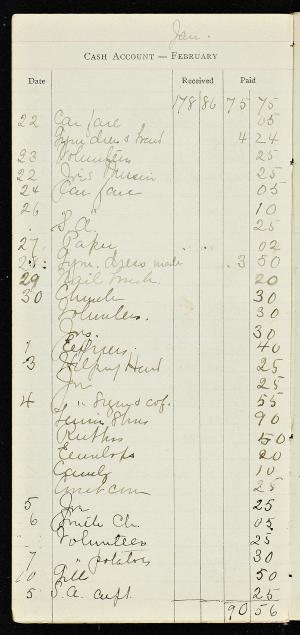 Jan.
CASH ACCOUNT — FEBRUARY
Date Received Paid
178 86 75 75
22 Car fare 05
Gym dress & 4 24
23 Volunteers 25
22 25
24 Car fare 05
26 " 10
S. A. 25
27 Paper 02
28 Gym. dress made 3 50
29 Nail brush 20
30 Church 30
Volunteers. 30
Jrs. 30
1 40
3 Helping Hand 25
Jr 25
4 " Gym & cof. 55
Tennis Shoes 90
50
Envelops 20
Candy 10
25
5 Jr 25
6 Ch. 05
Volunteers 25
7 " potatoes 30
10 50
5 S. A. 25
90 56